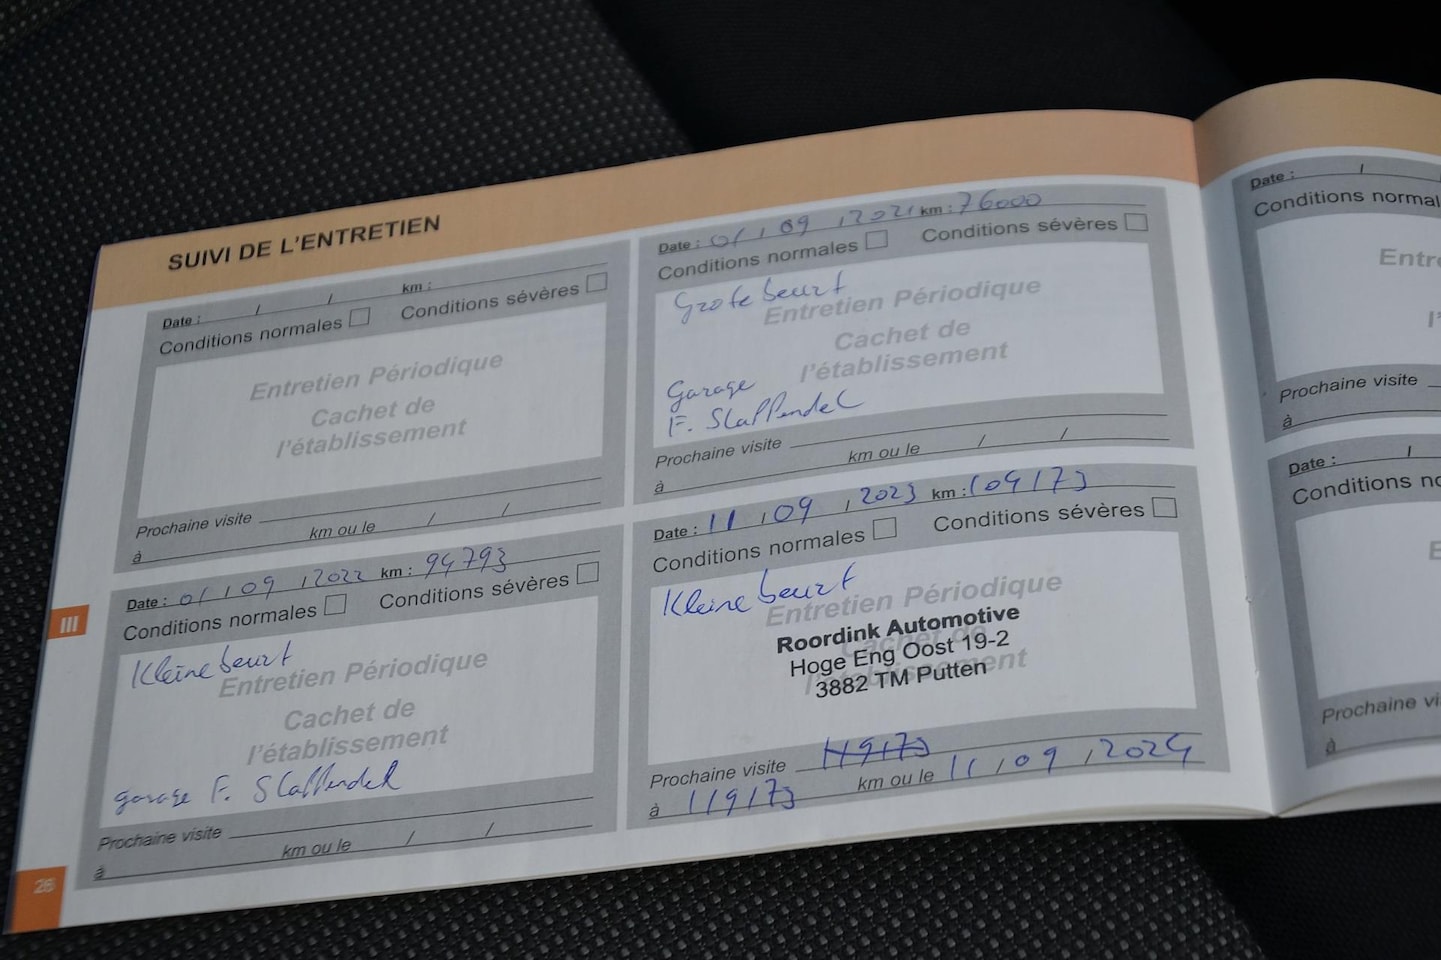 SUIVI DE L'ENTRETIEN
Date : / / km :
Conditions normales Conditions sévères
Entretien Périodique
Cachet de
l'établissement
Prochaine visite
à km ou le / /
Date : 01 / 09 / 2021 km : 76000
Conditions normales Conditions sévères
Grote beurt
Entretien Périodique
Cachet de
l'établissement
Garage
F. Slaffendel
Prochaine visite
à km ou le / /
III
Date : 01 / 09 / 2022 km : 94793
Conditions normales Conditions sévères
Kleine beurt
Entretien Périodique
Cachet de
l'établissement
garage F. Slaffendel
Prochaine visite
à km ou le / /
Date : 11 / 09 / 2023 km : 109173
Conditions normales Conditions sévères
Kleine beurt
Entretien Périodique
Cachet de
l'établissement
Roordink Automotive
Hoge Eng Oost 19-2
3882 TM Putten
Prochaine visite 119173
à 119173 km ou le 11 / 09 / 2024
26
Date : /
Conditions normal
Entr
l'
Prochaine visite
à
Date : /
Conditions no
E
Prochaine vi
à